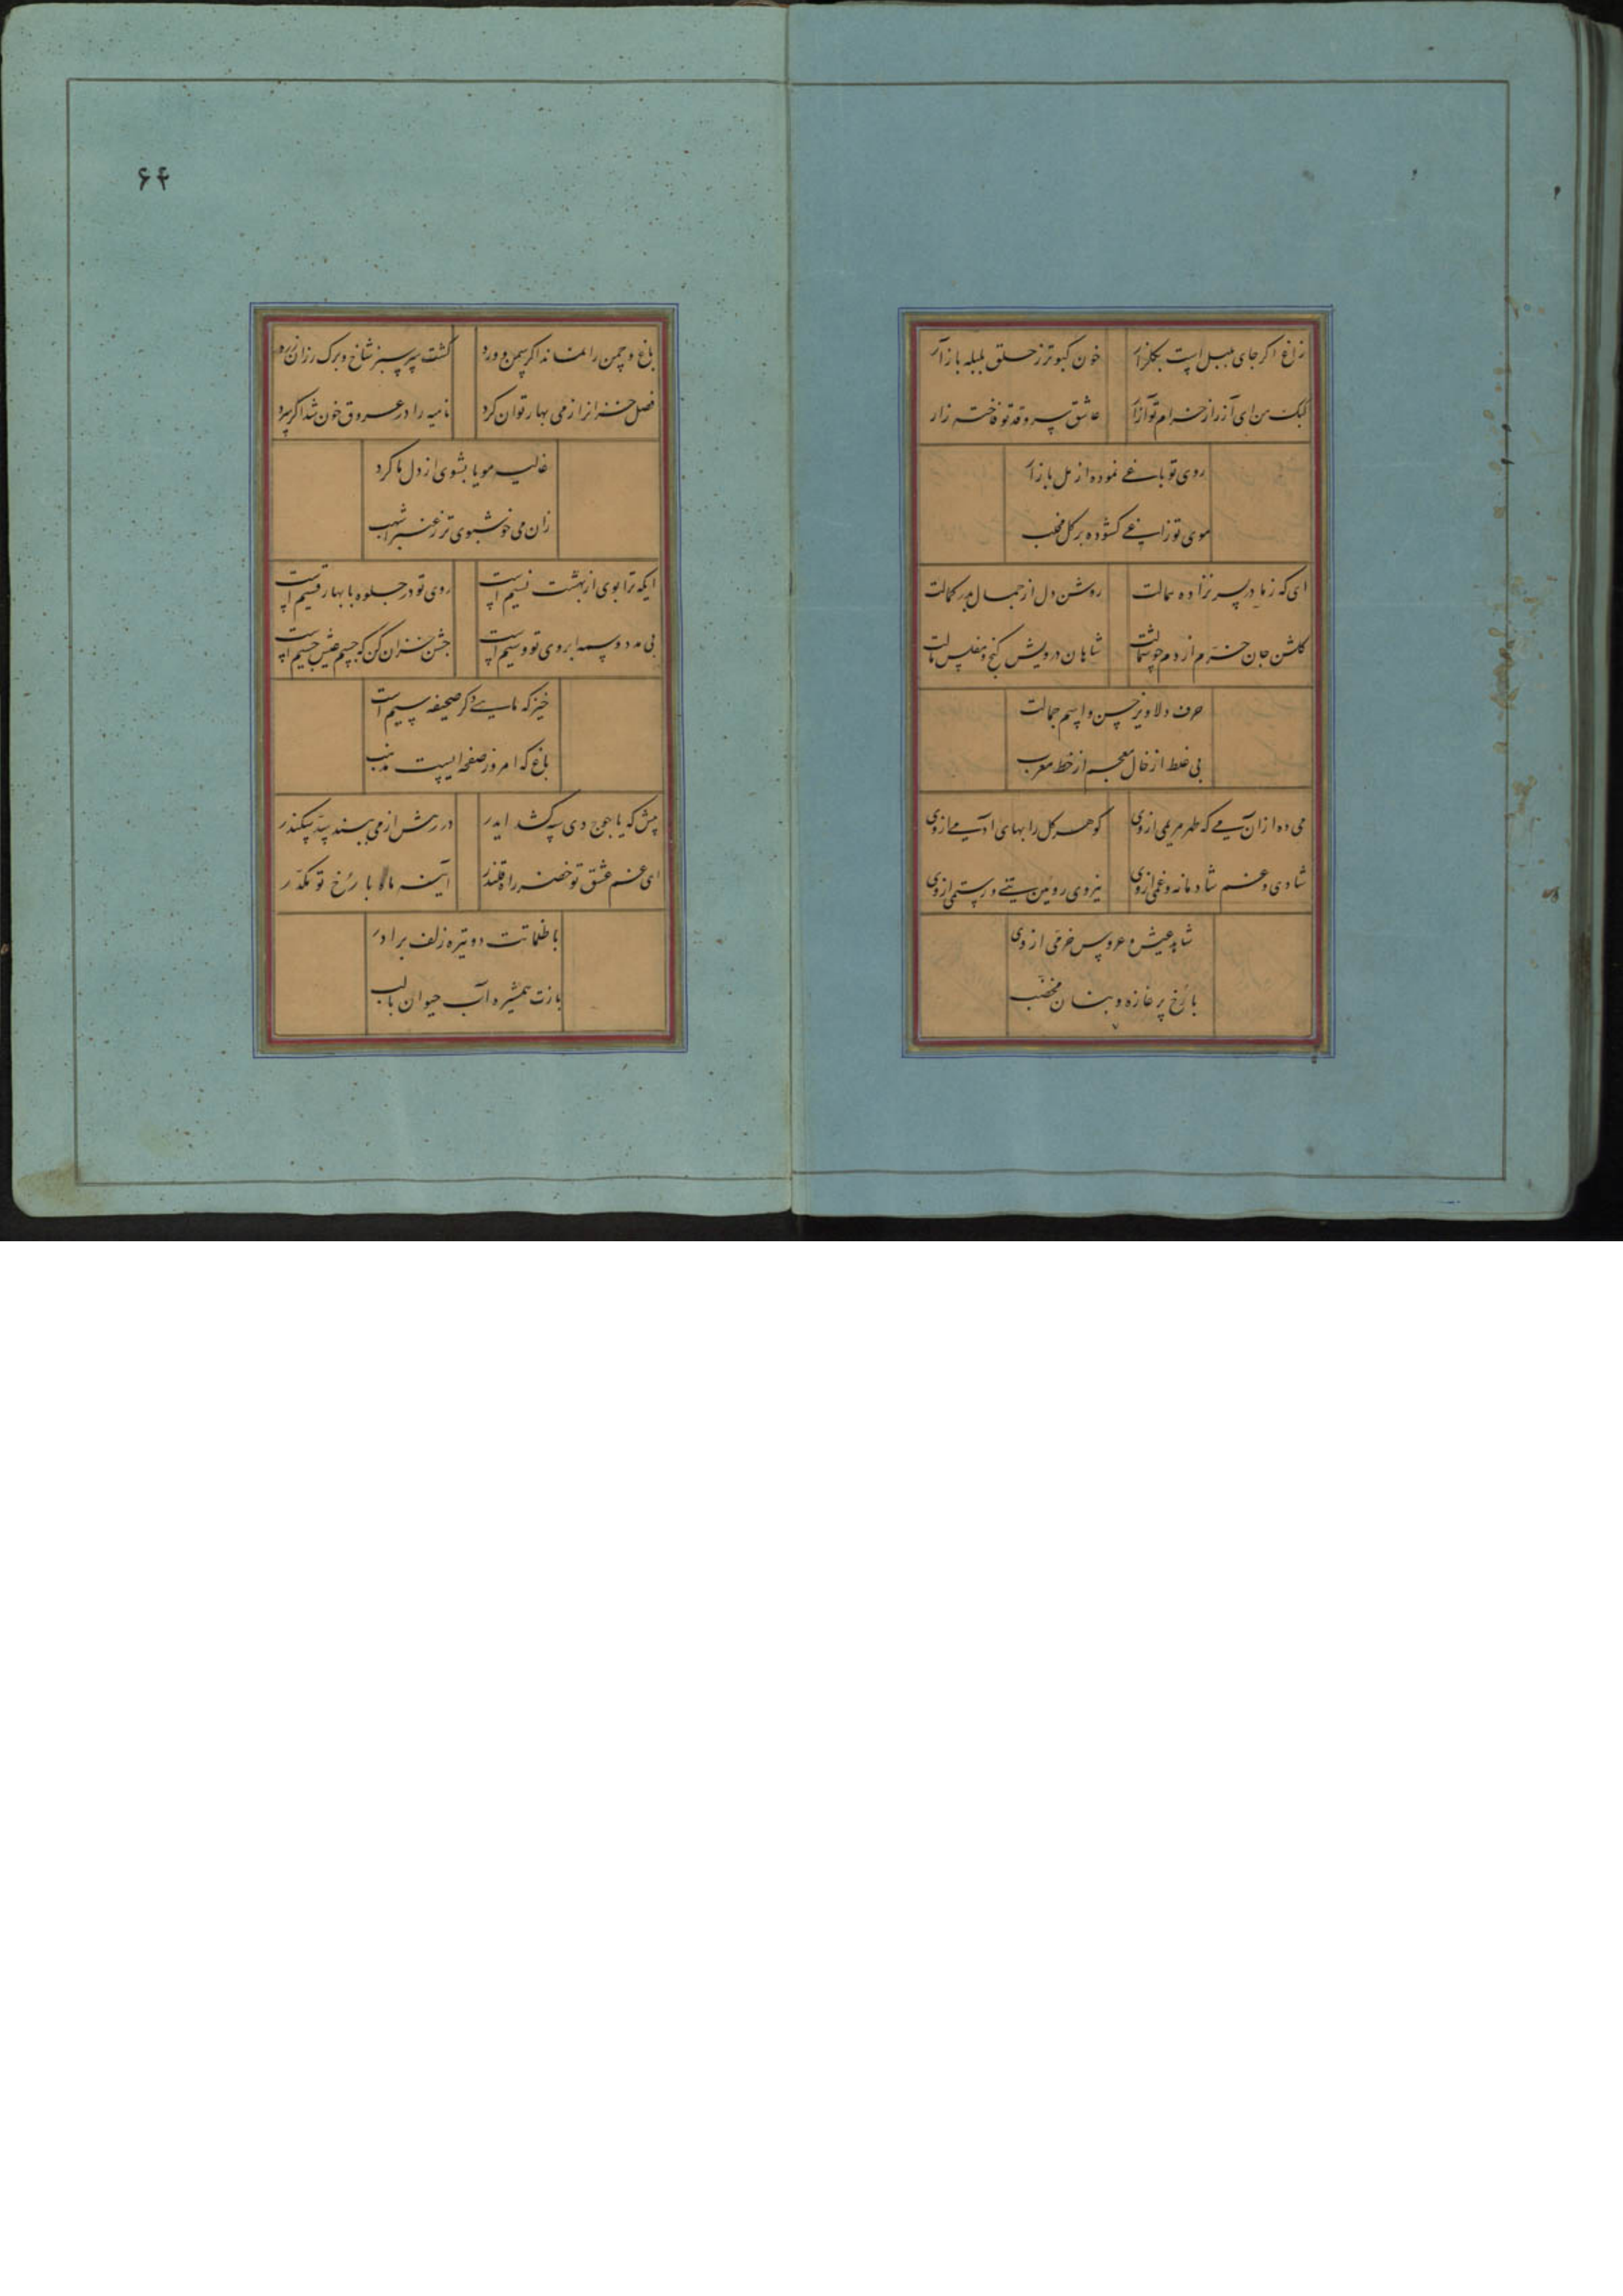 زاغ اگر جای بلبل است بگلزار خون کبوتر ز حلق بلبله باز آر
کبک من ای آزر از خرام تو آزار عاشق سرو قد تو فاخته زار
روی تو باغی نموده از مل بازار
موی تو زاغی گشوده بر گل مخلب
ای که ز مادر پسر نزاده همالت روشن دل از جمال بدر کمالت
گلشن جان خرم از دم چو شمالت شاهان درویش گنج و مفلس مالت
حرف دلاویز حسن و اسم جمالت
بی غلط از خال معجم از خط معرب
می ده ازان می که طهر مریمی از وی گوهر گل را بهای آدمی از وی
شادی و غم شادمانه و غمی از وی نیروی روئین تنی و رستمی از وی
شاهد عیش و عروس خرمی از وی
با رخ پر غازه و بنان مخضب
۶۴
باغ و چمن را نماند اگر سمن و ورد گشت سر سبز شاخ و برگ رزان زرد
فصل خزانرا ز می بهار توان کرد نامیه را در عروق خون شد اگر سرد
غالیه مویا بشوی از دل ما گرد
زان می خوشبوی تر ز عنبر اشهب
ایکه ترا بوی از بهشت نسیم است روی تو در جلوه با بهار قسیم است
بی مدد وسمه ابروی تو وسیم است جشن خزان کن که جسم عیش جسیم است
خیز که ماهی دگر صحیفه سیم است
باغ که امروز صفحه ایست مذهب
پیش که یاجوج دی سپه کشد ایدر در رهش از می ببند سد سکندر
ای غم عشق تو خضر راه قلندر آینه ماه با رخ تو مکدر
با ظلماتت دو تیره زلف برادر
بازت همشیره آب حیوان با لب